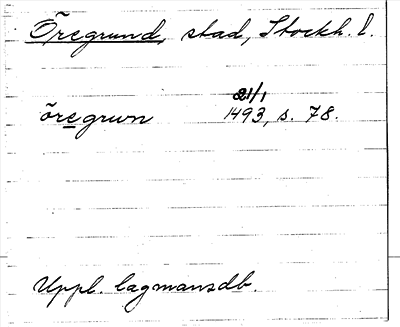 Öregrund, stad, Stockh. l.
21/1
öregrun 1493, s. 78.
Uppl. lagmansdb.